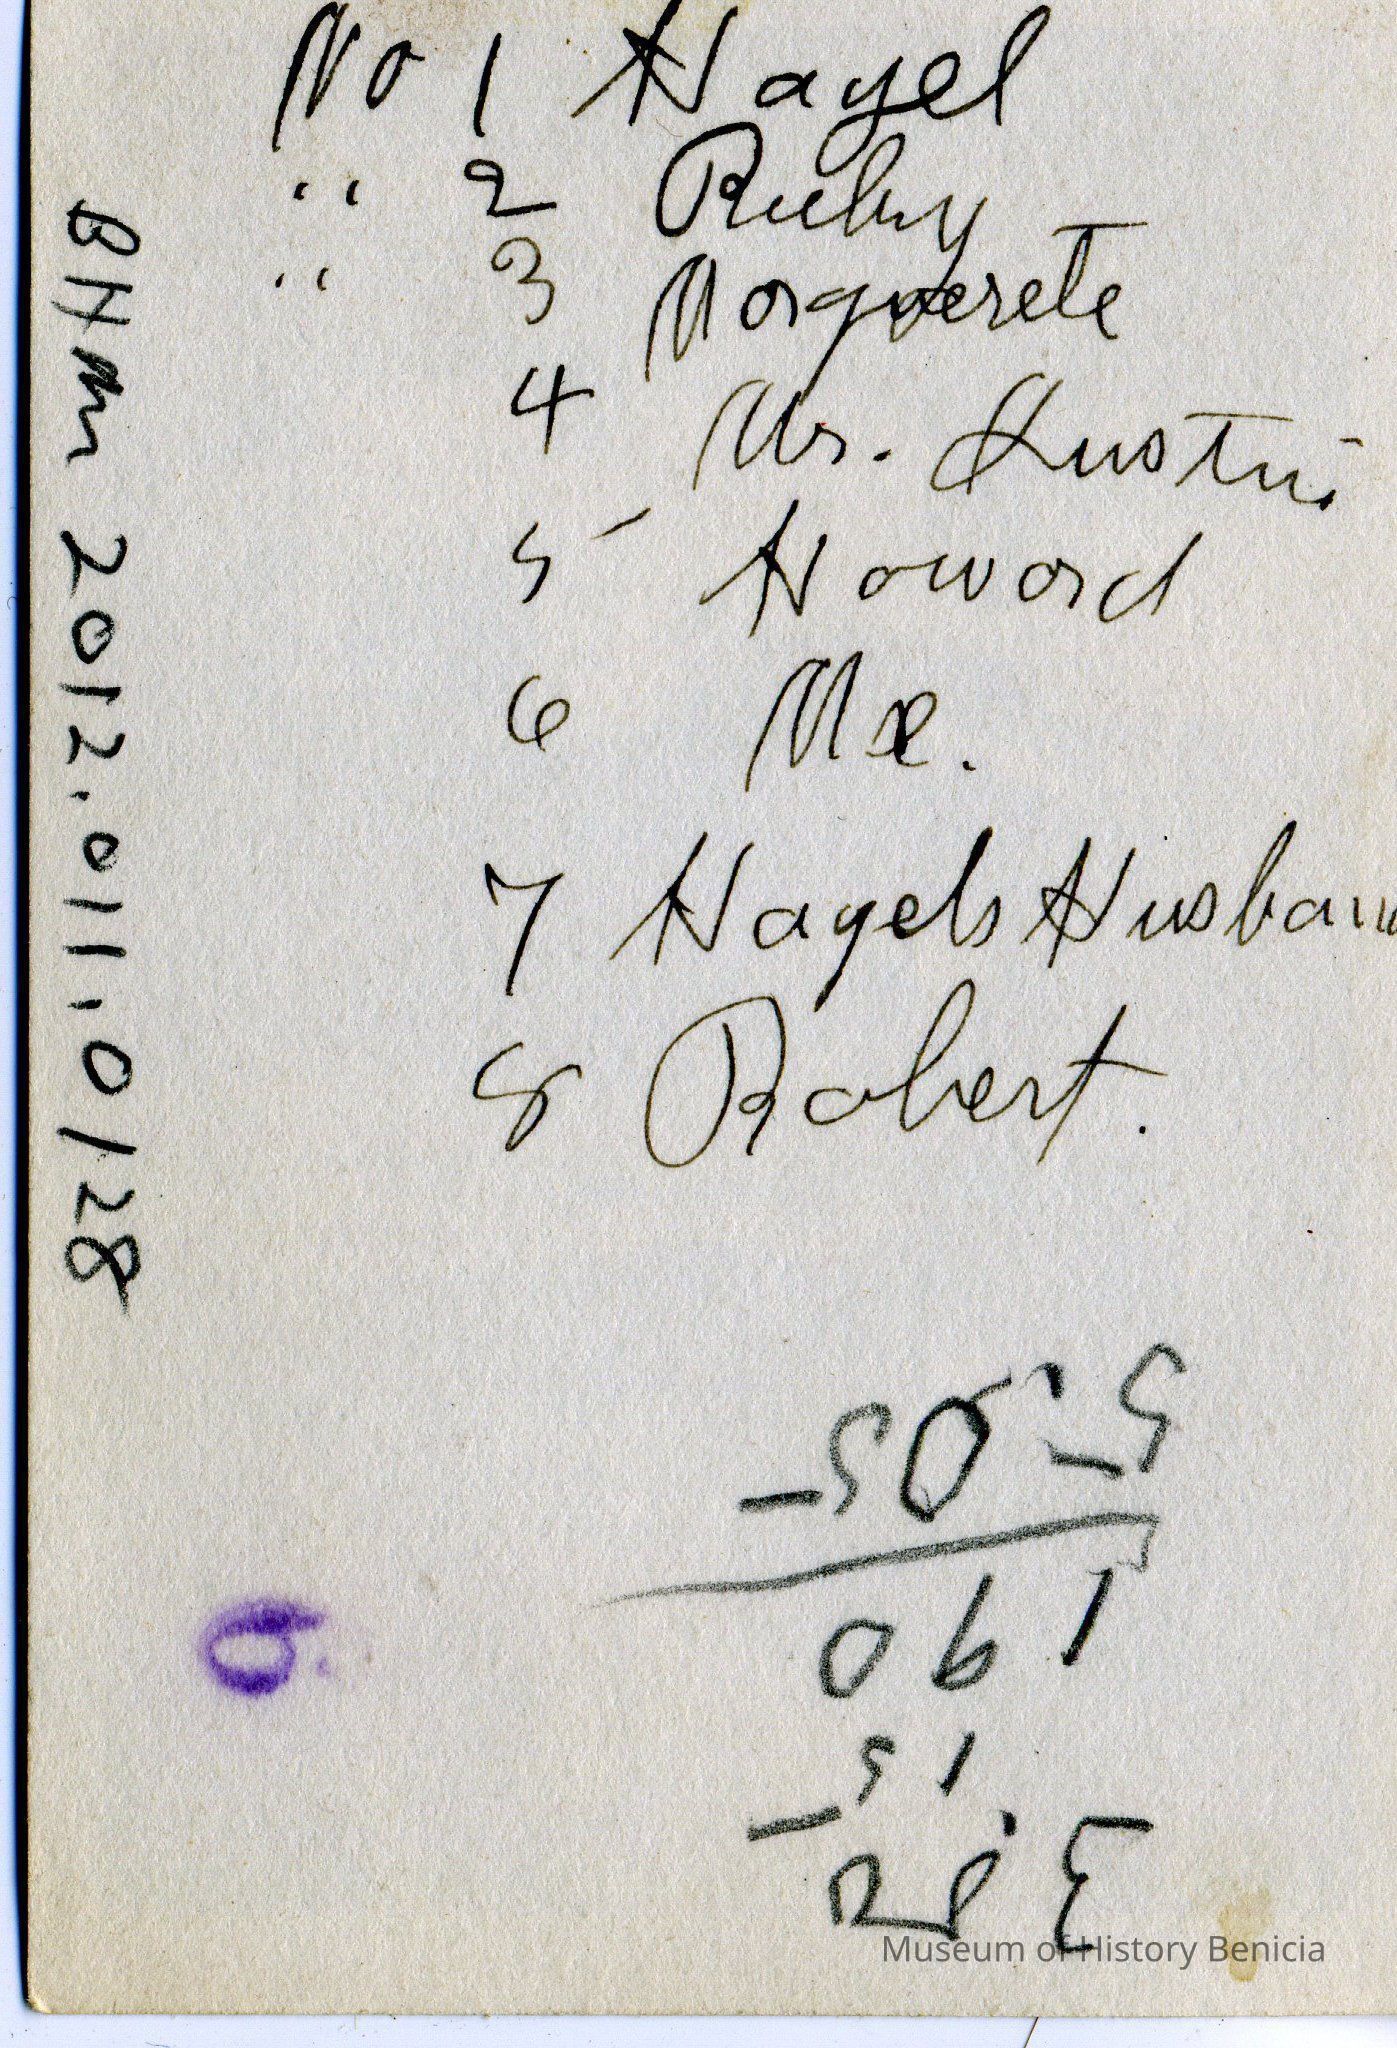 No 1 Hazel
" 2 Ruby
" 3 Morguerete
4 Mr. Austin.
5 Howord
6 Me.
7 Hazels Husban
8 Robert.
BHM 2012.011.0128
1 90
5.05
Museum of History Benicia